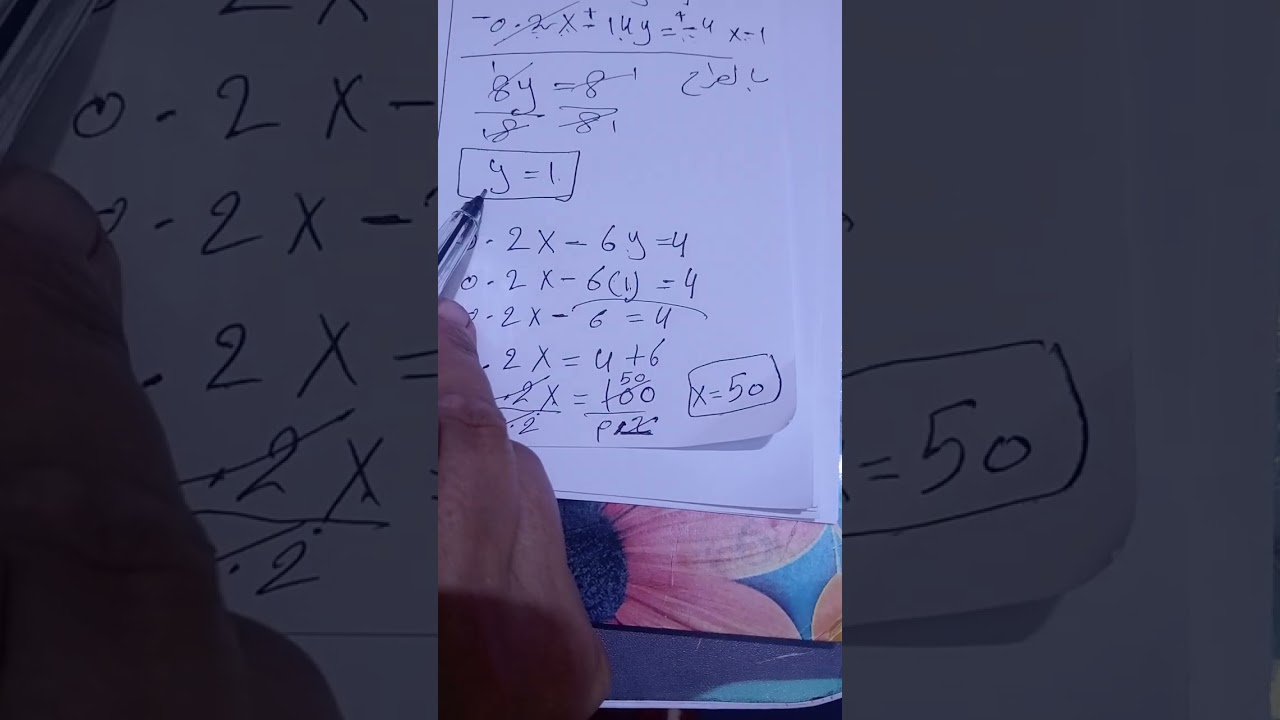 -0.2x ± 14y = ± 4 x-1
8y = 8 بالطرح
8 8 1
y = 1
0.2x - 6y = 4
0.2x - 6(1) = 4
0.2x - 6 = 4
.2x = 4 + 6
50
.2x = 100 x = 50
.2